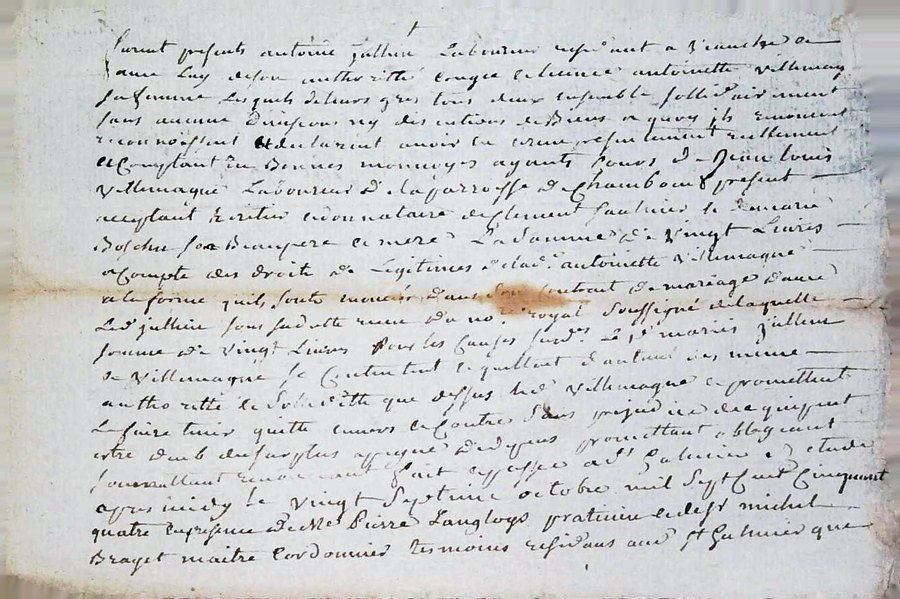 furent presents antoine Jullien Laboureur residant a
avec Luy de son authorité Congé et licence antoinette Villemagne
sa femme Lesquels dehors gres tous deux ensemble sollidairement
sans aucune Divisions ny discutions de Biens a quoy ils renoncent
reconnoissent et declarent avoir eu et receu presentement reellement
et Comptant En Bonnes monnoyes ayants Cours de Jean Louis
Villemagne Laboureur de la parroisse de Chambœuf present
acceptant heritier et donnataire de Clement et de marie
son Beaupere et mere La Somme de Vingt Livres
a Compte des droits de Legitimes de lad. antoinette Villemagne
a la forme quils sont dans son Contrant de mariage avec
Led. Jullien sous sa datte receu du no.re royal Soussigné de laquelle
somme de Vingt Livres pour les Causes susd. Led. maries Jullien
et Villemagne se Contentent et quittent d'autant des même
authorité et Solidité que dessus led. Villemagne et promettent
Le faire tenir quitte envers et Contre Sans prejudice
de surplus a peyne de depens promettant obligeant
soumettant renonceant fait et passé a St Galmier Etude
apres midy le Vingt Septieme octobre mil Sept Cent Cinquant
quatre en presence de Me Pierre Langloys praticien et de Sr michel
Brayet maitre Cordonnier tesmoins residans aud. St Galmier que